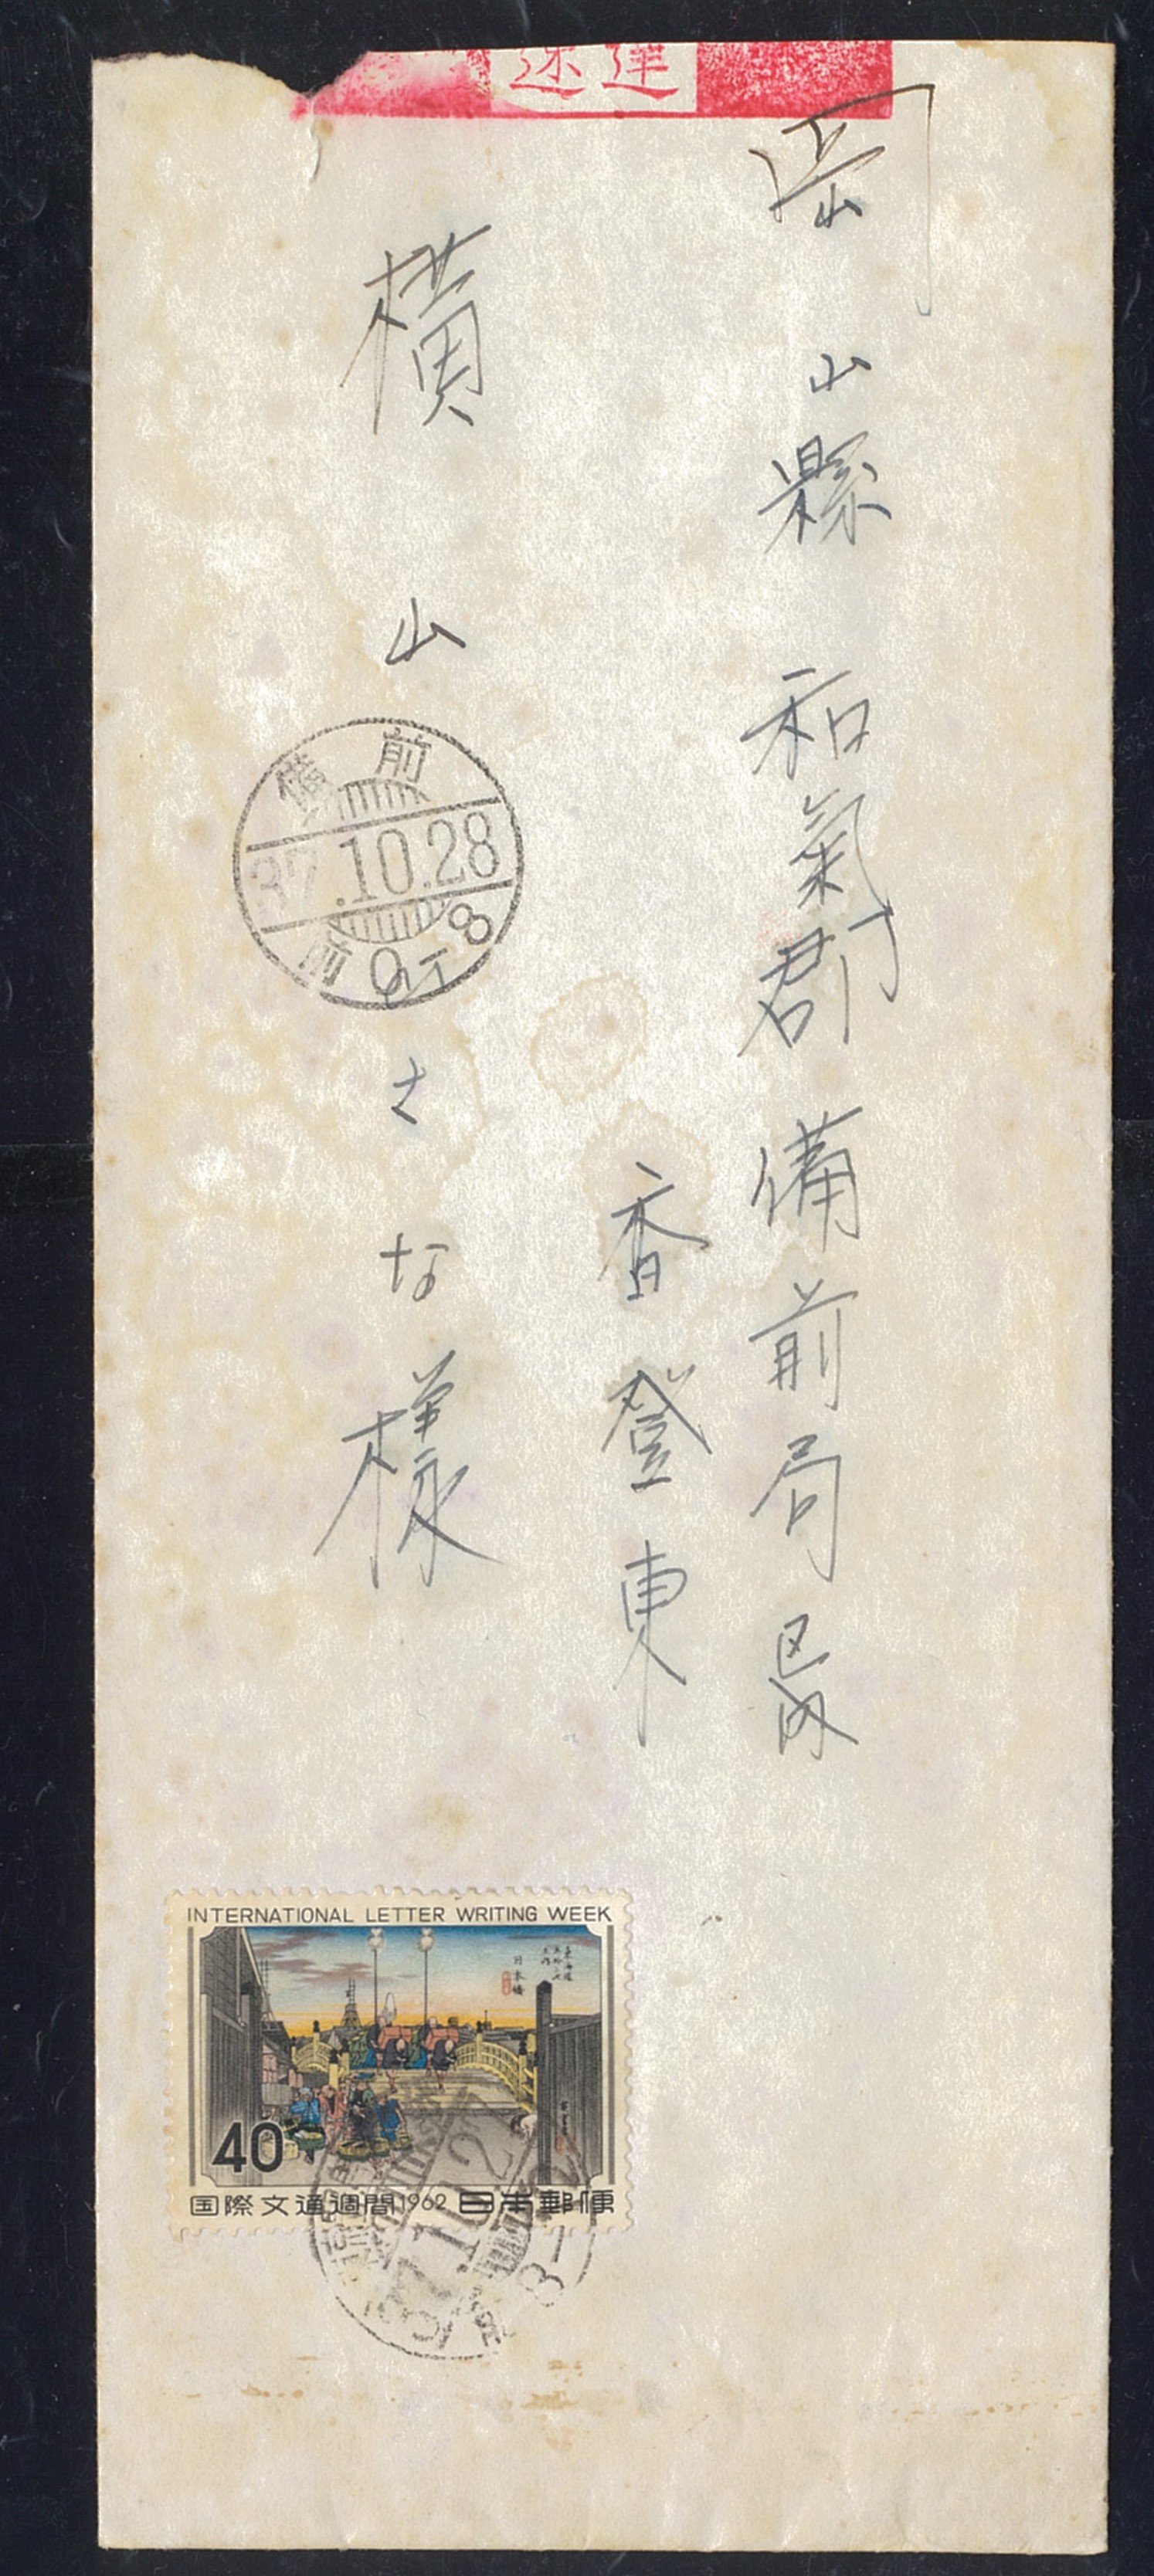 速達
岡山縣和氣郡備前局区内
香登東
横山さな様
備前
37.10.28
前 8-
INTERNATIONAL LETTER WRITING WEEK
東海道
日本橋
40
国際文通週間1962 日本郵便
37.10.2